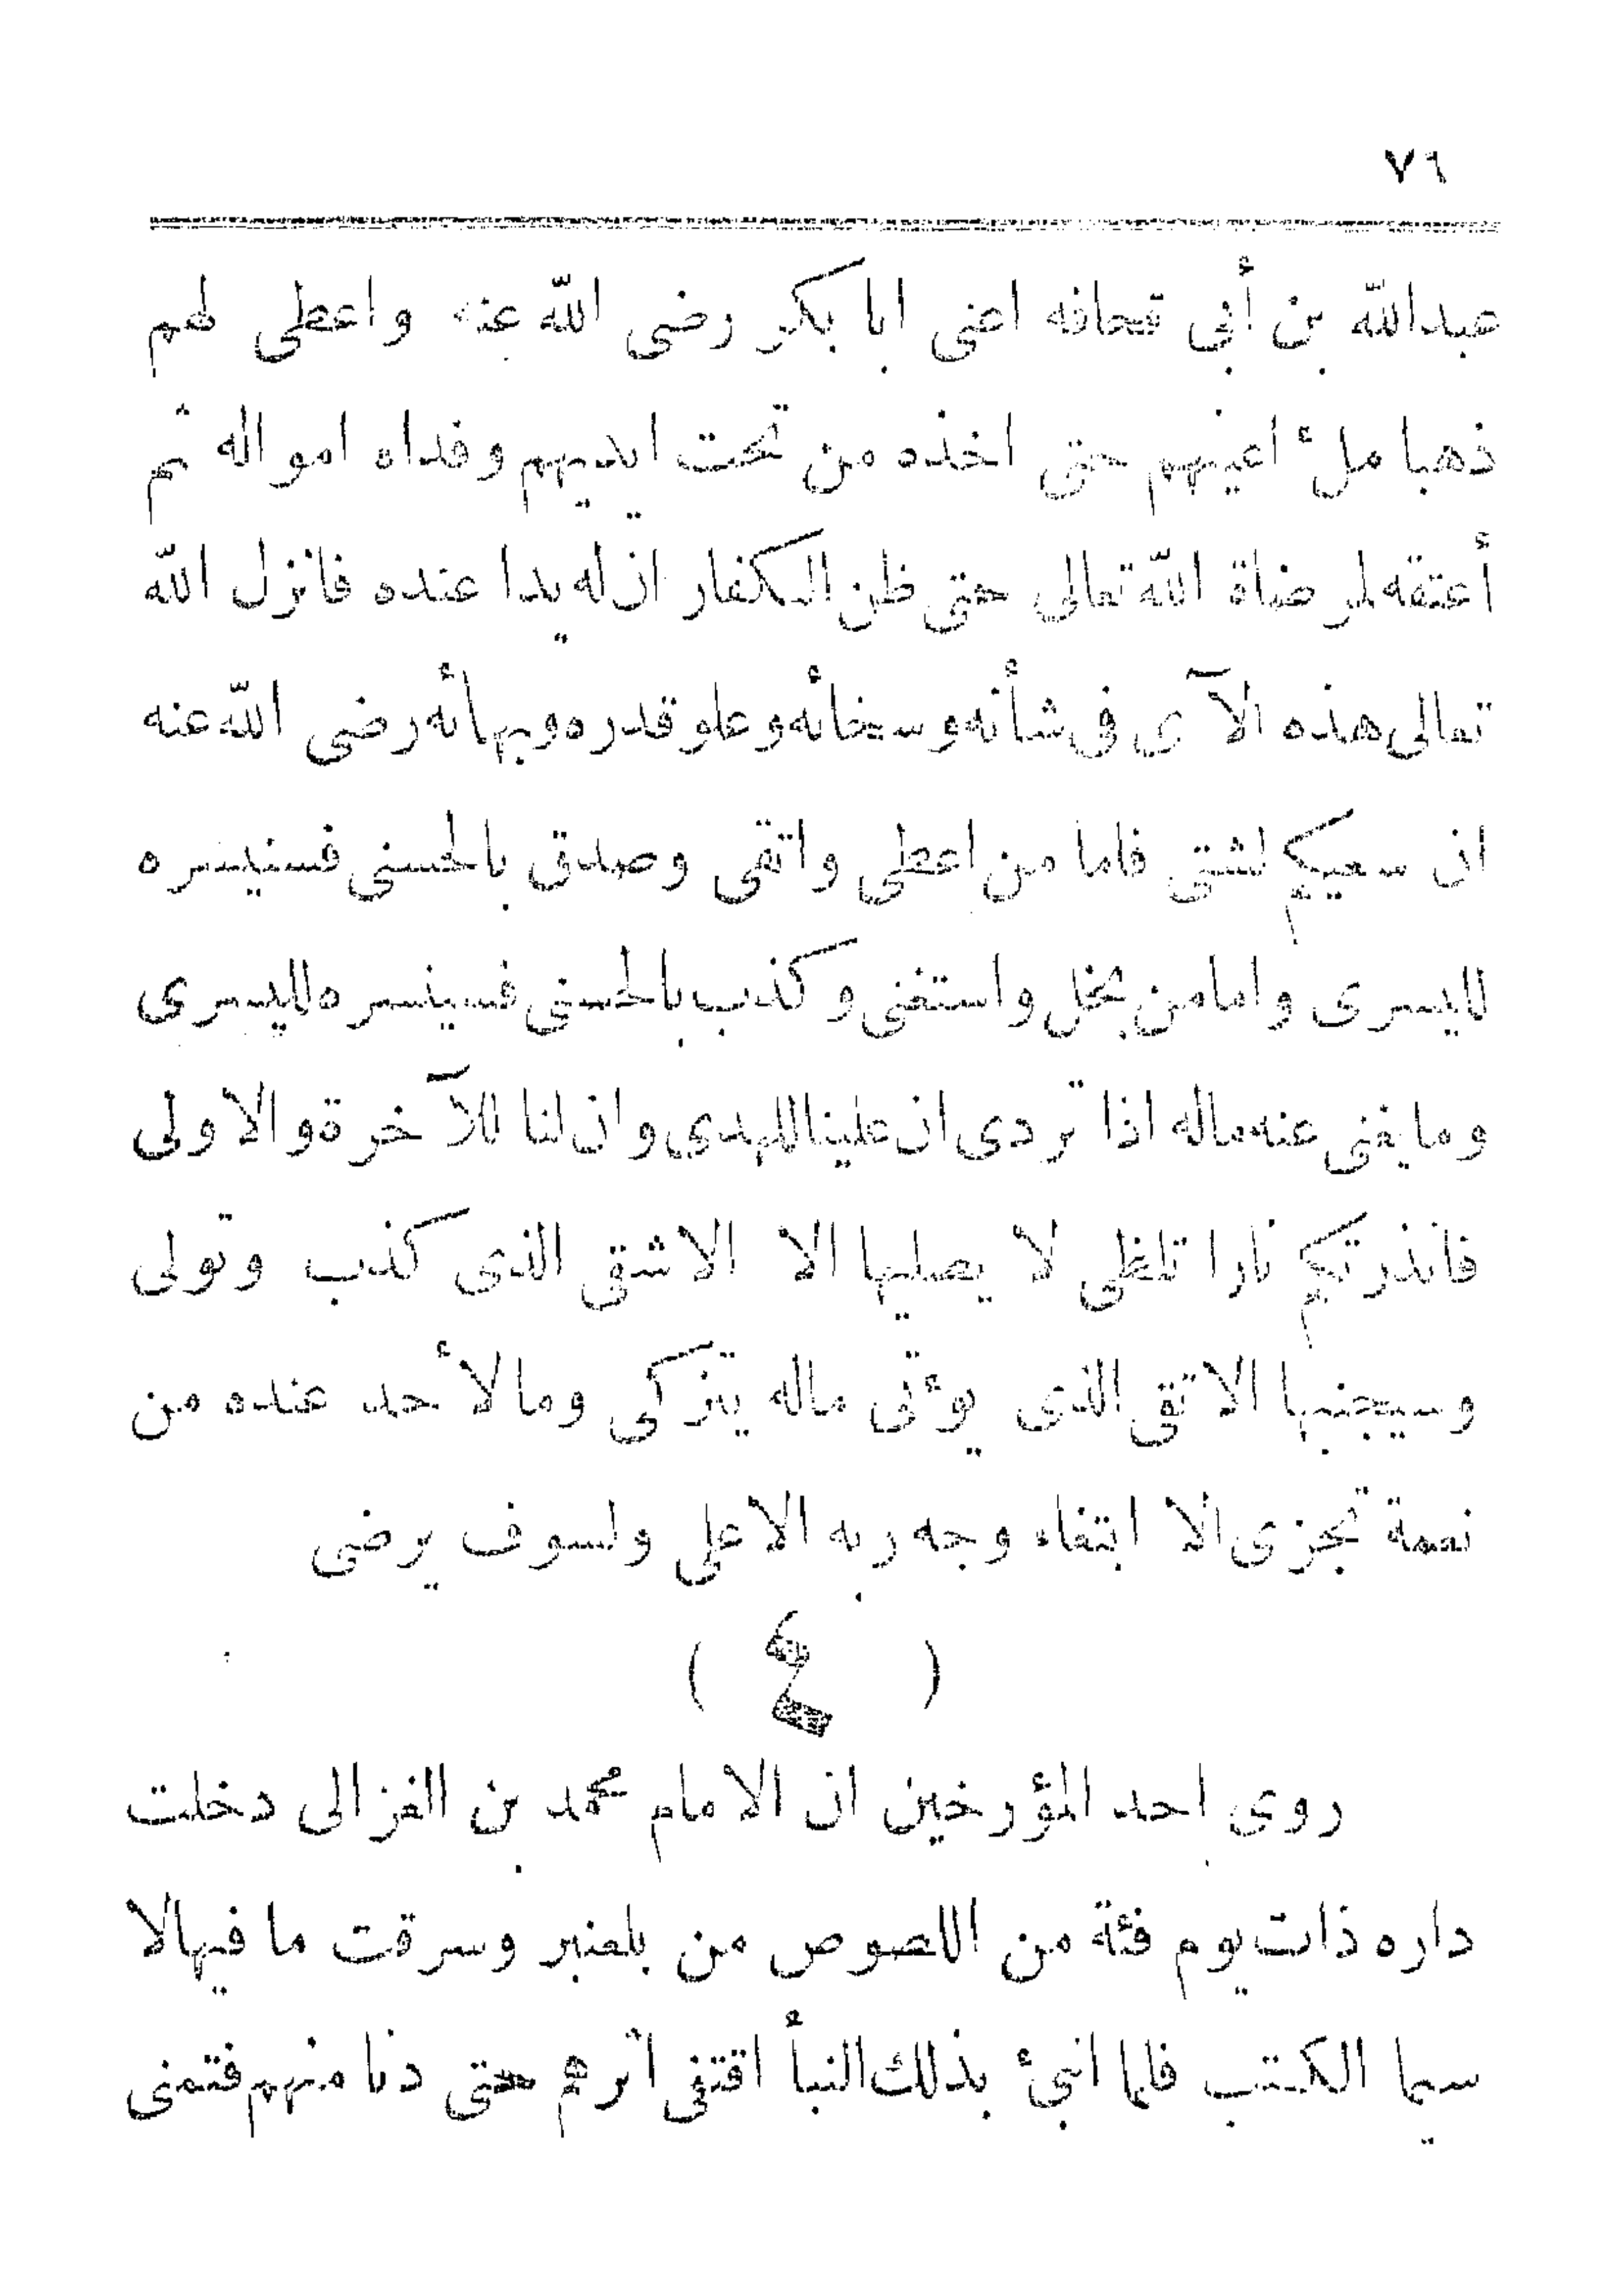 ٧٦
عبدالله بن أبي قحافه اعنى ابا بكر رضى الله عنه واعطى لهم
ذهبا ملئ اعينهم حتى اخذه من تحت ايديهم وفداه امواله ثم
أعتقه لمرضاة الله تعالى حتى ظن الكفار ان له يدا عنده فانزل الله
تعالى هذه الآى فى شأنه وسخائه وعلو قدره وبهائه رضى الله عنه
ان سعيكم لشتى فاما من اعطى واتقى وصدق بالحسنى فسنيسره
لليسرى واما من بخل واستغنى وكذب بالحسنى فسينسره لليسرى
وما يغنى عنه ماله اذا تردى ان علينا للهدى وان لنا للآخرة والاولى
فانذرتكم نارا تلظى لا يصليها الا الاشقى الذى كذب وتولى
وسيجنبها الاتقى الذى يؤتى ماله يتزكى وما لأحد عنده من
نعمة تجزى الا ابتغاء وجه ربه الاعلى ولسوف يرضى
روى احد المؤرخين ان الامام محمد بن الغزالى دخلت
داره ذات يوم فئة من اللصوص من بلعنبر وسرقت ما فيها لا
سيما الكتب فلما انبئ بذلك النبأ اقتفى اثرهم حتى دنا منهم فتمنى